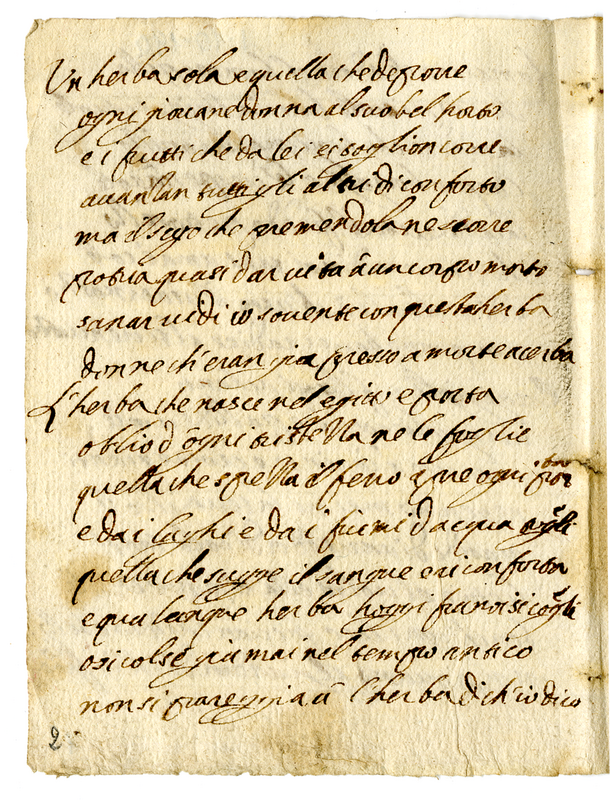 Un herba sola e quella che de porre
ogni giovane donna al suo bel horto
e i frutti che da lei si soglion corre
avantan tutti gli altri di conforto
ma il sugo che premendola ne scorre
potria quasi dar vita à un corpo morto
sanar vidi io sovente con questa herba
donne ch'eran gia presso a morte acerba
L'herba che nasce nel egitto e porta
oblio d'ogni tristezza ne le foglie
quella che spezza il ferro ogni porta
e da i laghi e da i fiumi d'acqua
quella che sugge il sangue e riconforta
e qualunque herba hoggi fra noi si cogli
o si colse gia mai nel tempo antico
non si pareggia à l'herba di ch'io dico
2